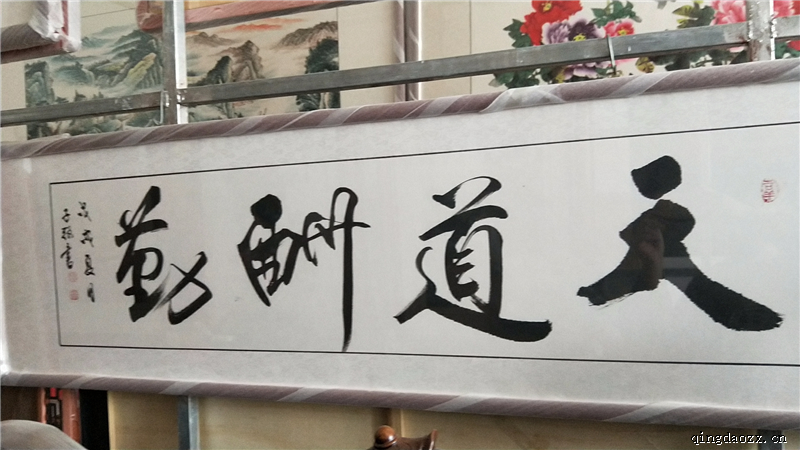 天道酬勤
戊戌夏月
子
書
qingdaozz.cn